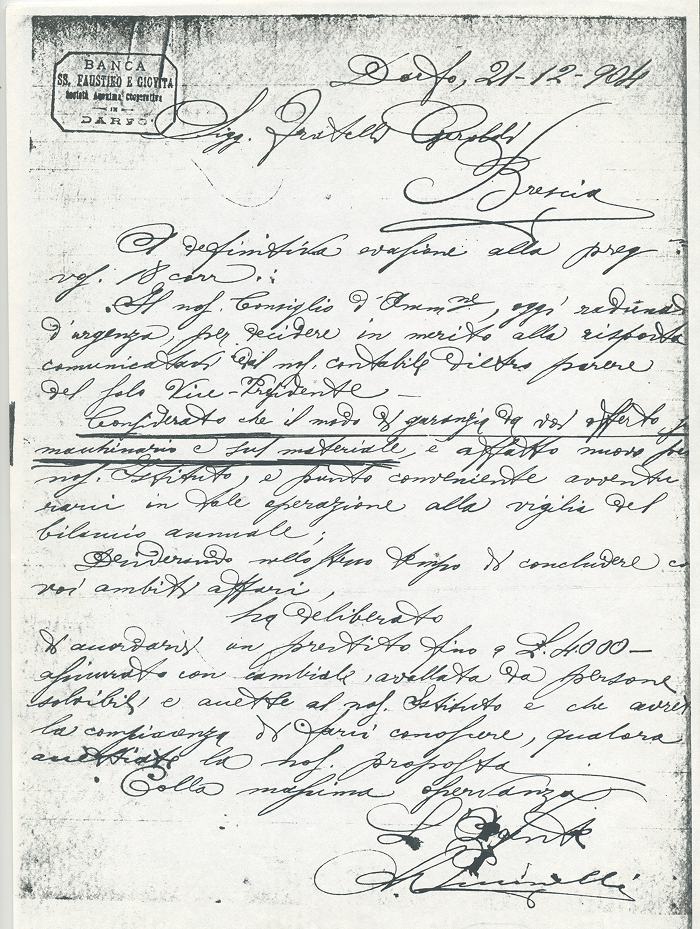 BANCA
SS. FAUSTINO E GIOVITA
Società Anonima Cooperativa
IN
DARFO
Darfo, 21-12-904
Sigg. Fratelli
Brescia
A definitiva evasione alla preg
vos. 18 corr.:
Il nos. Consiglio d'Amm.ne, oggi radunat
d'urgenza, per decidere in merito alla risposta
comunicatavi dal nos. contabile dietro parere
del solo Vice-Presidente —
Considerato che il modo di garanzia da voi offerto, s
macchinario e sul materiale, è affatto nuovo pel
nos. Istituto, e punto conveniente avventu
rarci in tale operazione alla vigilia del
bilancio annuale;
Desiderando nello stesso tempo di concludere co
voi ambiti affari,
ha deliberato
di accordarvi un prestito fino a £. 4000—
assicurato con cambiale, avallata da persone
solvibili e accette al nos. Istituto e che avret
la compiacenza di farci conoscere, qualora
accettiate la nos. proposta
Colla massima osservanza